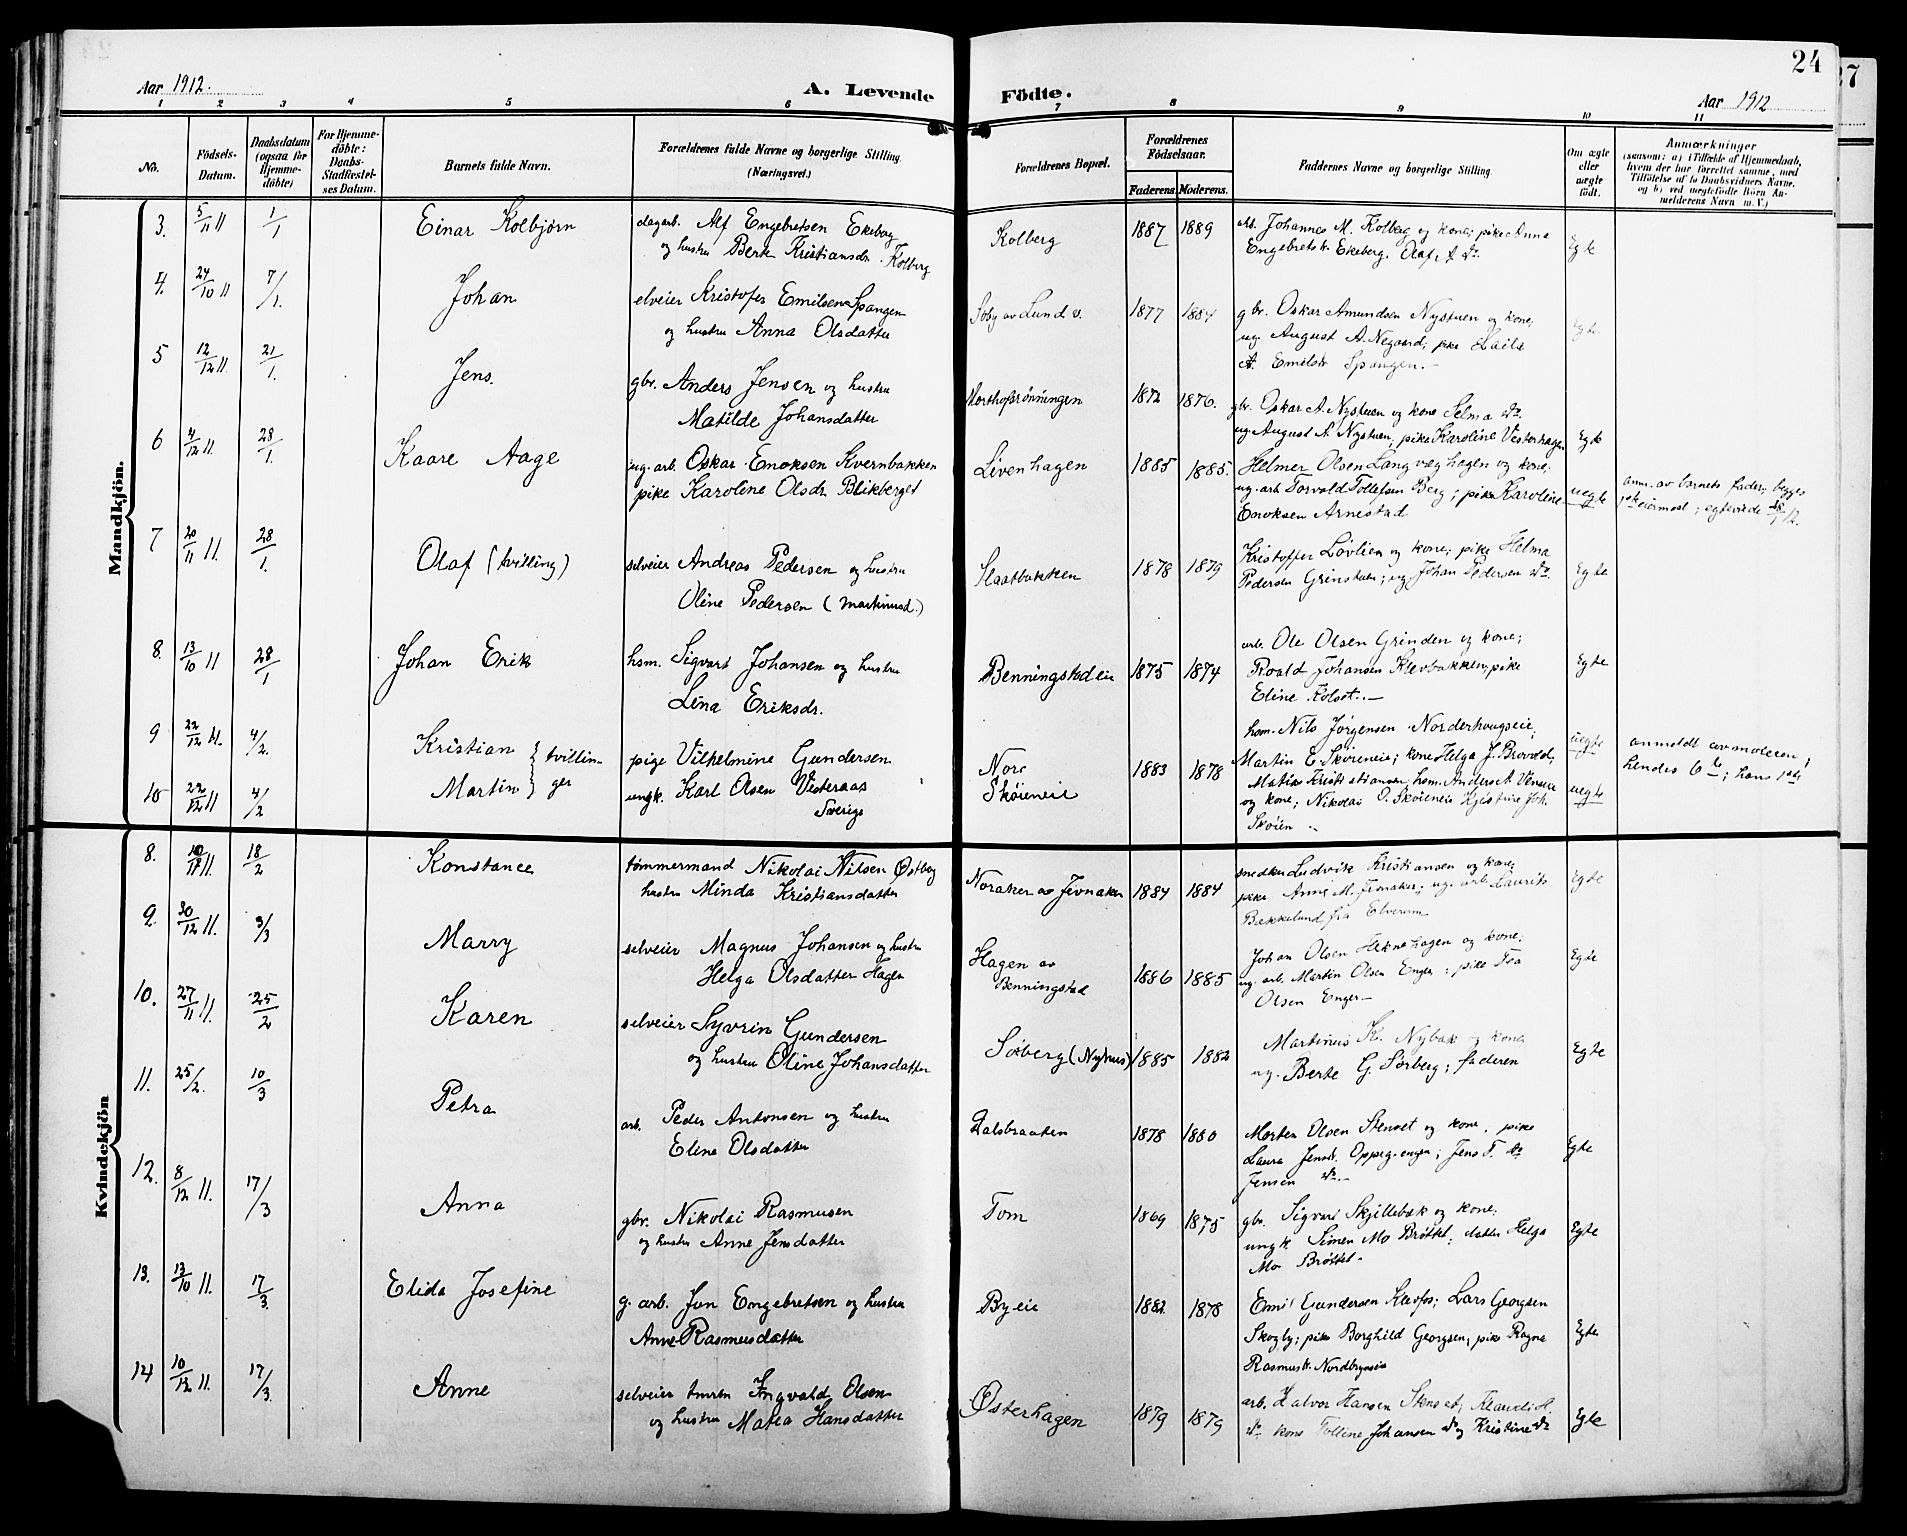 24
27
Aar 1912.
A. Levende
Födte.
Aar 1912
1 2 3 4 5 6 7 8 9 10 11
No.
Födsels-Datum.
Daabsdatum (ogsaa for Hjemmedöbte)
For Hjemmedöbte: Daabs-Stadfestelses Datum.
Barnets fulde Navn.
Forældrenes fulde Navne og borgerlige Stilling (Næringsvei.)
Forældrenes Bopæl.
Forældrenes Födselsaar.
Faderens. Moderens.
Faddernes Navne og borgerlige Stilling.
Om ægte eller uægte födt.
Anmærkninger
(saasom: a) i Tilfælde af Hjemmedaab, hvem der har forrettet samme, med Tilföielse af to Daabsvidners Navne, og b) ved uægtefödte Börn Anmelderens Navn m. V.)
Mandkjön.
3. 5/11 11 1/1 Einar Kolbjörn
dagarb. Alf Engebretsen Ekeberg
og hustru Berte Kristiansdr. Kolberg
Kolberg 1887 1889
arb. Johannes M. Kolberg og kone; pike Anna
Engebretsk. Ekeberg, Olaf A do. Egte
4. 24/10 11 7/1. Johan
selveier Kristofer Emilsen Spangen
og hustru Anna Olsdatter
Söby av Lund v. 1877 1884
gbr. Oskar Amundsen Nystuen og kone;
ug. August A. Negaard; pike Laila
A. Emilsdr Spangen. Egte.
5 12/12 11. 21/1. Jens.
gbr. Anders Jensen og hustru
Matilde Johansdatter
1872 1876.
gbr. Oskar A. Nystuen og kone Selma do.
ug. August A. Nystuen, pike Karoline Vesterhagen Egte
6 4/12 11. 28/1. Kaare Aage
ug. arb. Oskar Enoksen Kvernbakken
pike Karoline Olsdr. Blikberget
Livenhagen 1885 1885.
Helmer Olsen Langvæghagen og kone;
ug. arb Torvald Tollefsen Berg; pike Karoline
Enoksen Arnestad uegte
anm. av barnets fader; begges
1ste leiermaal; egteviede 28/1 12.
7 20/11 11. 28/1. Olaf (tvilling)
selveier Andreas Pedersen og hustru
Oline Pedersen (Martinusd.)
Slaatbakken 1878 1879
Kristoffer Lövlien og kone; pike Helma
Pedersen Grinstuen; ug. Johan Pedersen do. Egte
8. 13/10 11 28/1 Johan Erik
hsm. Sigvart Johansen og hustru
Lina Eriksdr.
Benningstadeie 1875 1874
arb. Ole Olsen Grinden og kone;
Roald Johansen Klevbakken; pike
Eline Kolset. Egte
9 22/12 11. 4/2. Kristian } tvillin-
10 22/12 11 4/2 Martin } ger
pige Vilhelmine Gundersen
ungk. Karl Olsen Vesteraas
Sverige
Nore
Skøieneie 1883 1878
hsm. Nils Jørgensen Norderhougseie,
Martin E. Skøieneie; kone Helga J. Brovold,
Matias Kristiansen, hsm. Anders A. Venner
og kone; Nikolai O. Skøieneie Kristine Joh.
Skøien uegte
uegte
anmeldt av moderen;
hendes 6te; hans 1ste
Kvindekjön
8. 10/12 11. 18/2 Konstance
tømmermand Nikolai Nilsen Østberg
hustru Minda Kristiansdatter
Noraker av Jevnaker 1884 1884
snedker Ludvik Kristiansen og kone;
pike Anne M. Jevnaker; ug. arb. Laurits
Bækkelund fra Elverum Egte
9. 30/12 11. 3/3 Marry
selveier Magnus Johansen og hustru
Helga Olsdatter Hagen
Hagen av
Benningstad 1886 1885
Johan Olsen Heknehagen og kone;
ug. arb. Martin Olsen Enger; pike Tea
Olsen Enger Egte
10. 27/11 11. 25/2 Karen
selveier Syvrin Gundersen
og hustru Oline Johansdatter
Sørberg (Nyhus) 1885 1882
Martinus K. Nybak og kone
ug. Berte G. Sørberg; faderen Egte
11. 25/2. 10/3 Petra
arb. Peder Antonsen og hustru
Eline Olsdatter
Dalsbraaten 1878 1880
Morten Olsen Stenset og kone, pike
Laura Jensdr. Oppeg.engen; Jens T. do
Jensen do. Egte
12. 8/12 11. 17/3 Anna
gbr. Nikolai Rasmusen
og hustru Anne Jensdatter
Tom 1869 1875
gbr. Sigvart Skjillebæk og kone;
ungk. Simen Mo Brøttet; datter Helga
Mo Brøttet. Egte
13. 13/10 11. 17/3. Elida Josefine
g. arb. Jon Engebretsen og hustru
Anne Rasmusdatter
Byeie 1882 1878
Emil Gundersen Klevfos; Lars Georgsen
Skogly; pike Borghild Georgsen; pike Ragna
Rasmusdr. Nordbyeie Egte
14 10/12 11. 17/3. Anne
selveier tmrm Ingvald Olsen
og hustru Matea Hansdatter
Østerhagen 1879 1879
arb. Halvor Hansen Stenset, Klaudi H.
do. kone Tolline Johansen do og Kristine do Egte